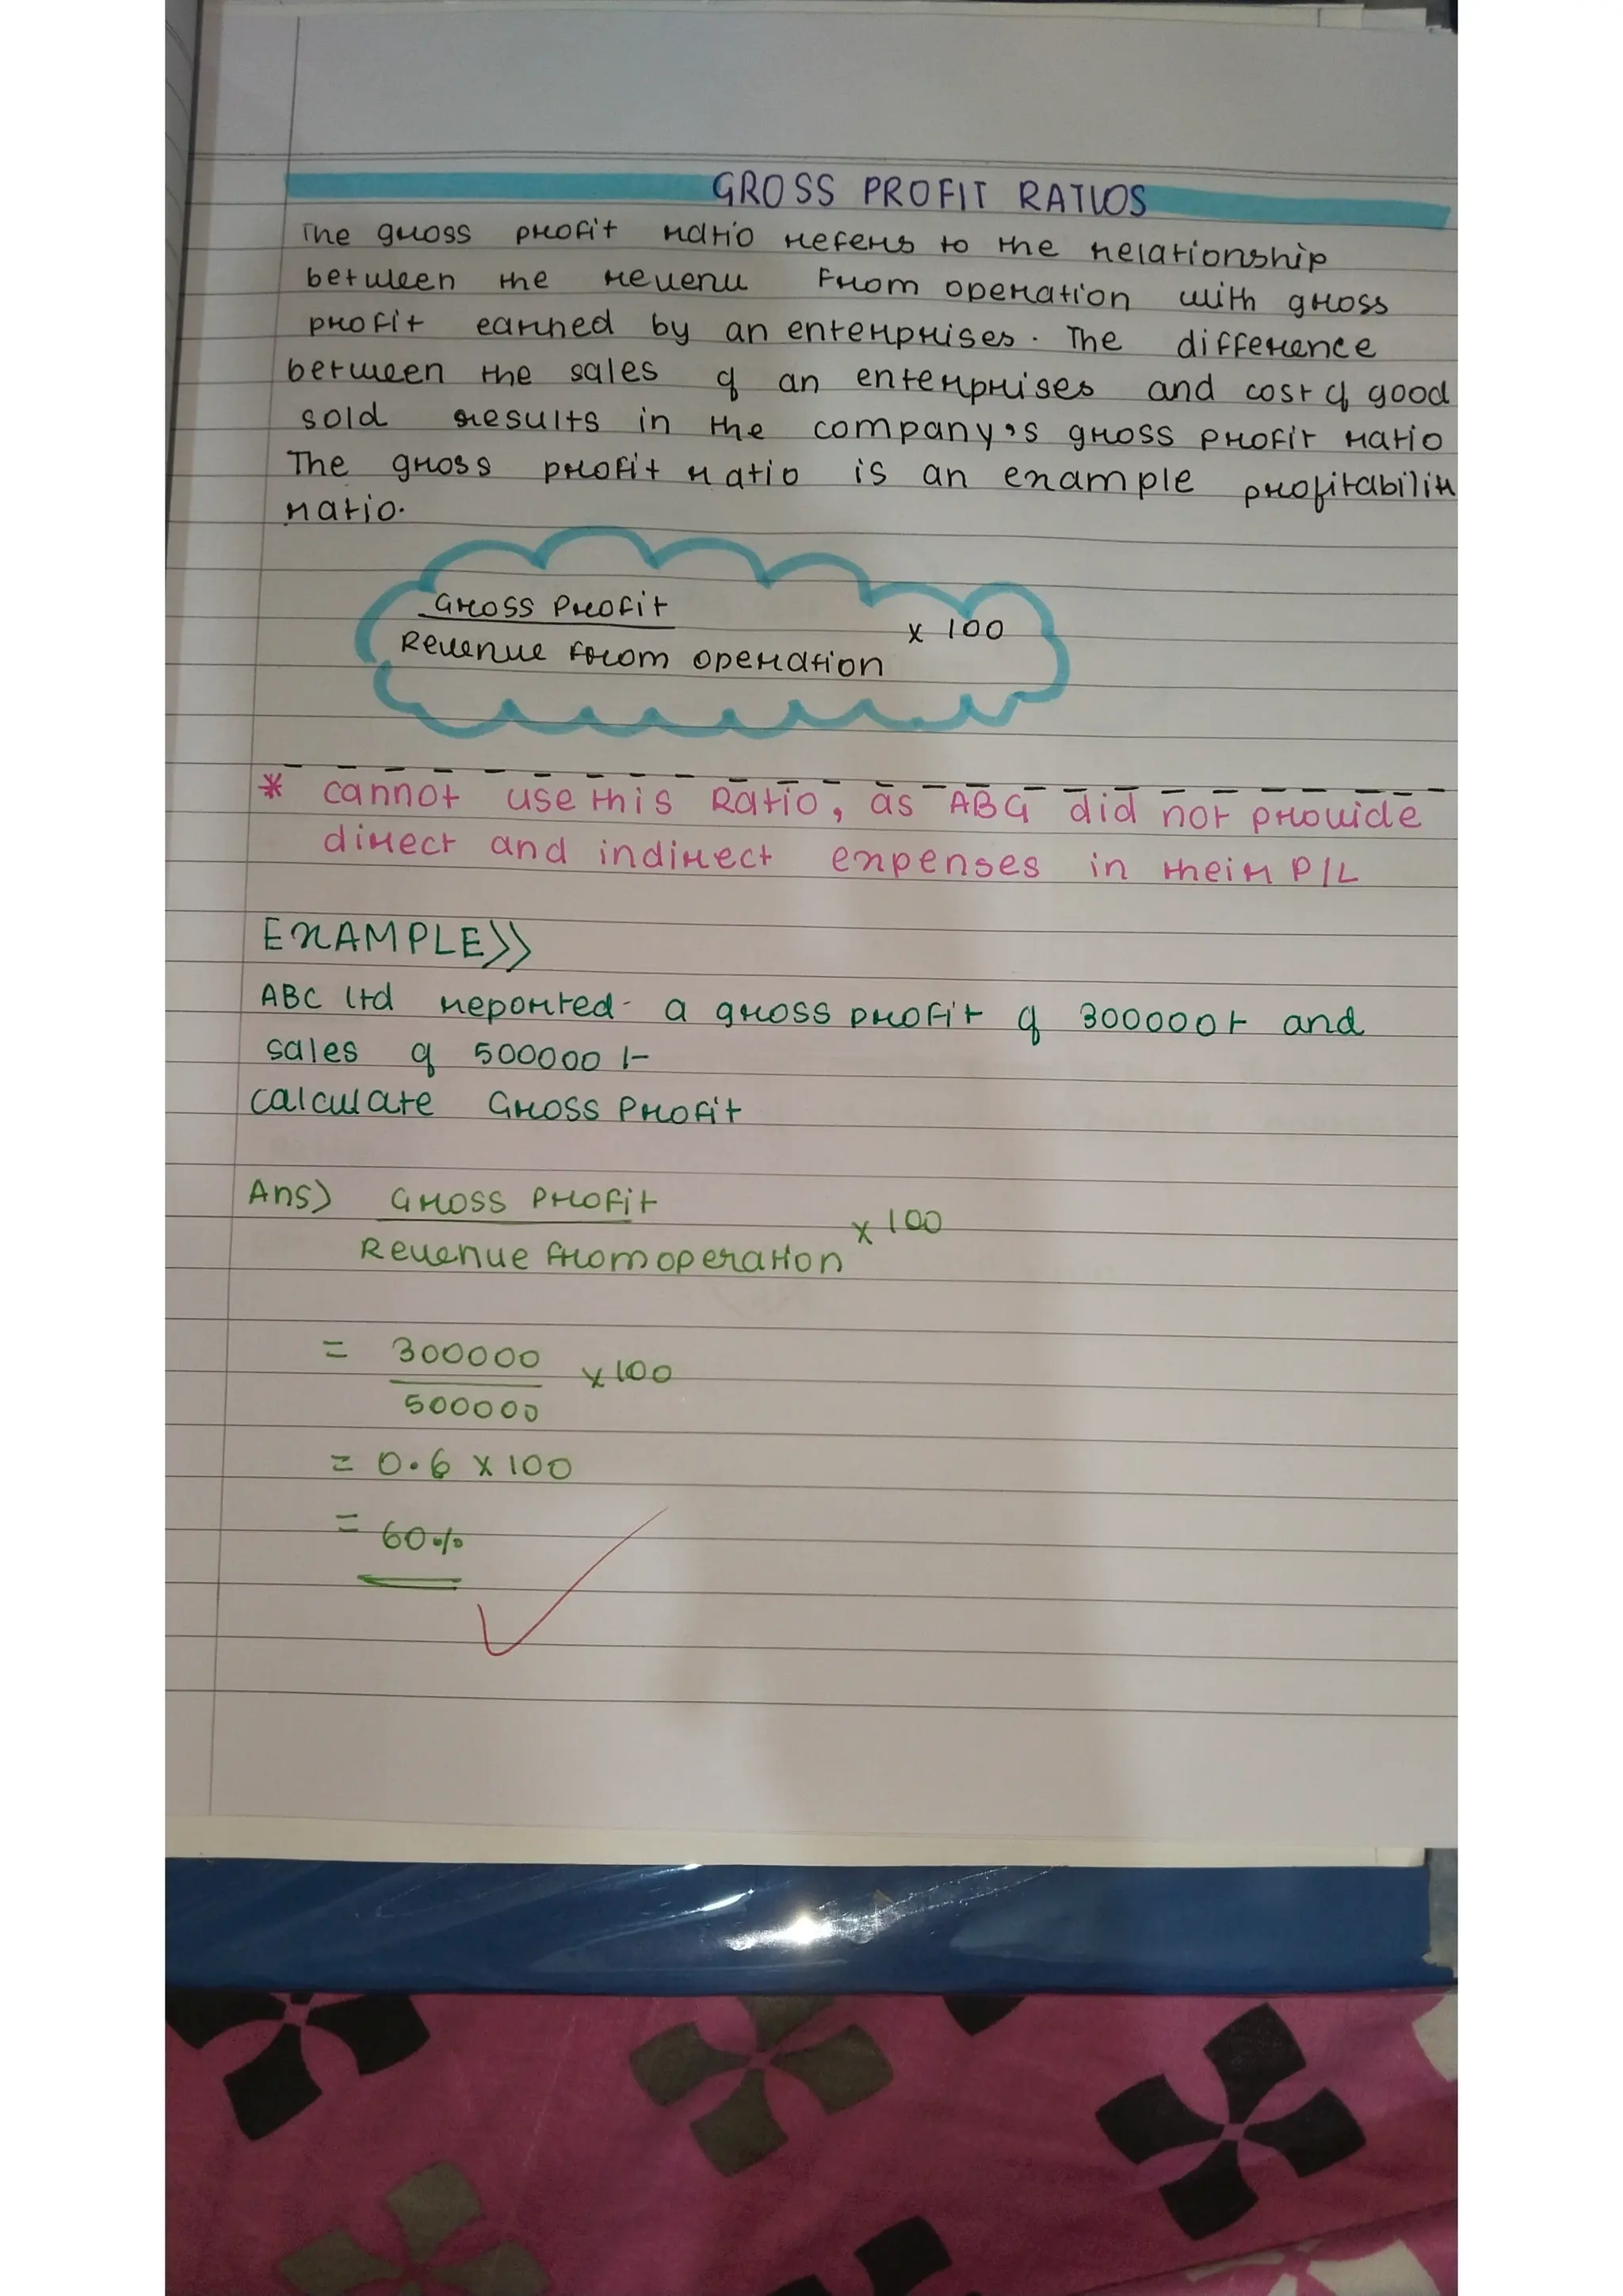 GROSS PROFIT RATIOS
The gross profit ratio refers to the relationship
between the revenu from operation with gross
profit earned by an enterprises. The difference
between the sales of an enterprises and cost of good
sold results in the company's gross profit ratio
The gross profit ratio is an example profitability
ratio.
Gross Profit
x 100
Revenue from operation
* cannot use this Ratio, as ABG did not provide
direct and indirect expenses in their P/L
EXAMPLE>>
ABC ltd reported a gross profit of 300000/- and
sales of 500000 /-
calculate Gross Profit
Ans) Gross Profit
x 100
Revenue from operation
= 300000 x 100
500000
= 0.6 x 100
= 60%